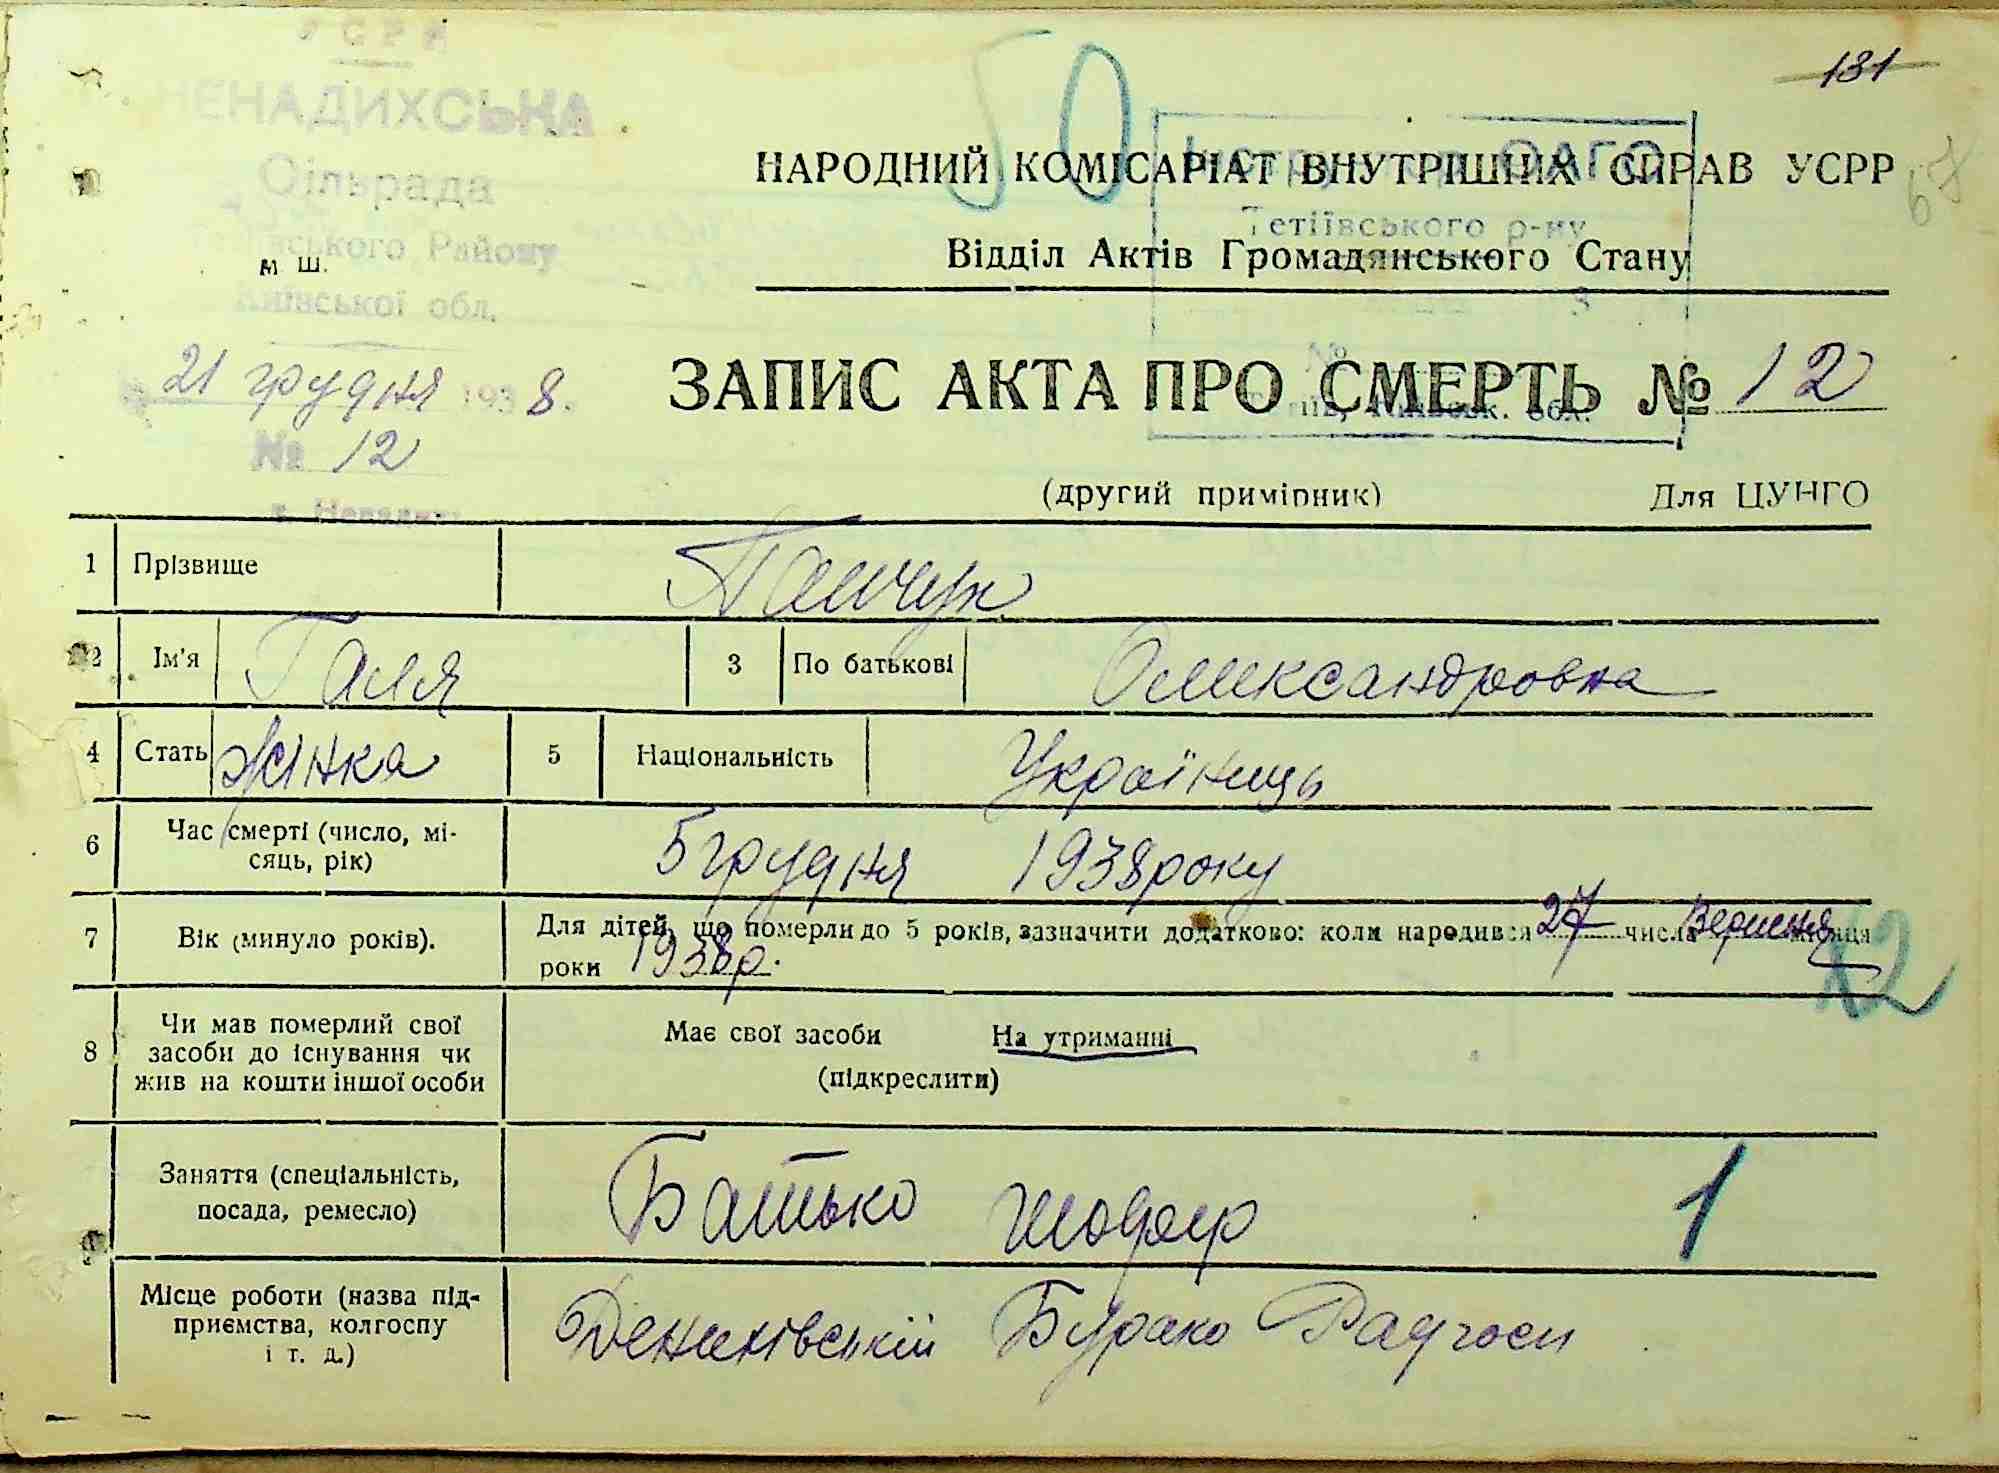 УСРР
НЕНАДИХСЬКА
Сільрада
Району
Київської обл.
м. ш.
21 грудня 1938.
№ 12
131
50
67
НАРОДНИЙ КОМІСАРІАТ ВНУТРІШНІХ СПРАВ УСРР
Відділ Актів Громадянського Стану
ОАГС
Тетіївського р-ну
№
обл.
ЗАПИС АКТА ПРО СМЕРТЬ № 12
(другий примірник) Для ЦУНГО
1 Прізвище Панчук
2 Ім'я Галя 3 По батькові Олександровна
4 Стать жінка 5 Національність Українець
6 Час смерті (число, місяць, рік) 5 грудня 1938 року
7 Вік (минуло років). Для дітей, що померли до 5 років, зазначити додатково: коли народився 27 числа Вересня місяця
роки 1938р.
12
8 Чи мав померлий свої
засоби до існування чи
жив на кошти іншої особи
Має свої засоби На утриманні
(підкреслити)
Заняття (спеціальність,
посада, ремесло)
Батько шофер 1
Місце роботи (назва під-
приємства, колгоспу
і т. д.)
Бурако Радгосп